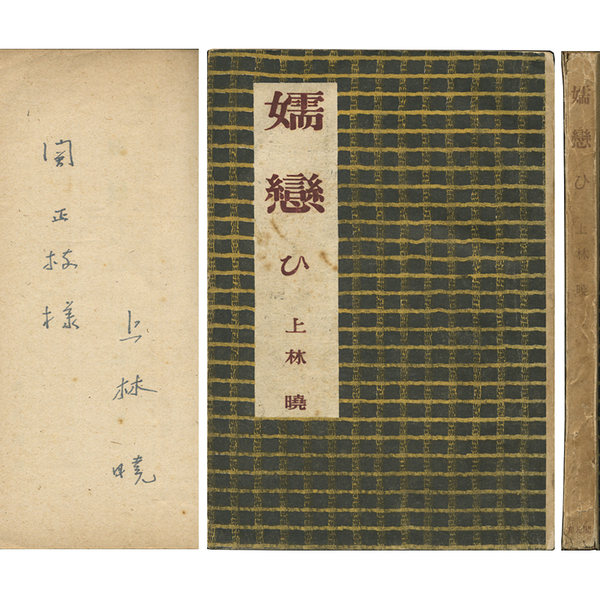 上林曉
関正枝様
嬬戀ひ
上林曉
嬬戀ひ 上林曉